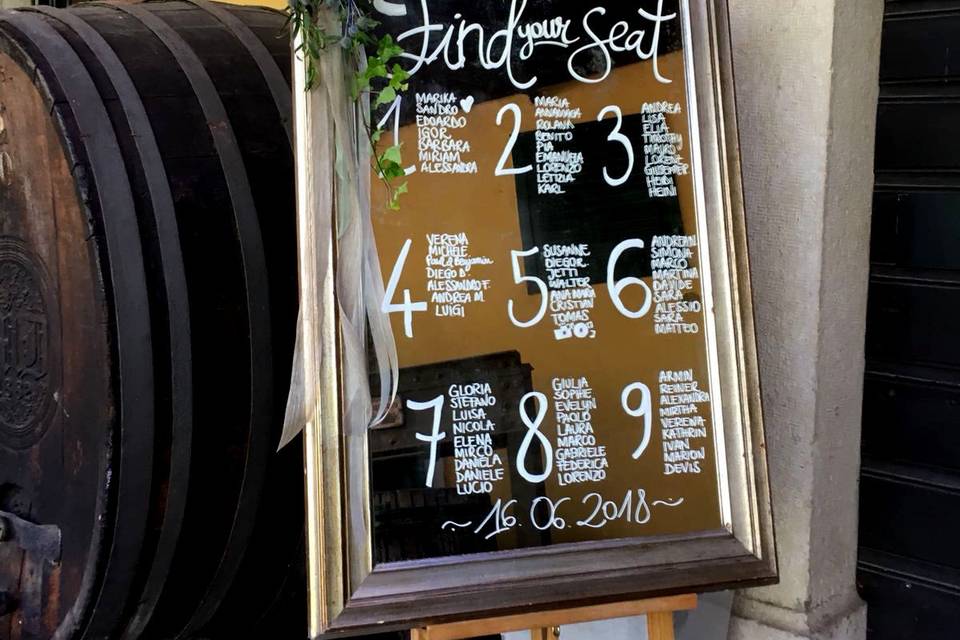 Find your Seat
1
MARIKA
SANDRO
EDOARDO
IGOR
BARBARA
MIRIAM
ALESSANDRA
2
MARIA
ANNAMARIA
ROLANA
BENITO
PIA
EMANUELA
LORENZO
LETIZIA
KARL
3
ANDREA
LISA
ELIA
TIMOTHY
MAURO
LORENZ
HEIDI
HEINI
4
VERENA
MICHELE
Paul & Benjamin
DIEGO D.
ALESSANDRO F.
ANDREA M.
LUIGI
5
SUSANNE
DIEGO R.
JETTI
WALTER
ANA MARIA
CRISTIAN
TOMAS
6
ANDREAN
SIMONA
MARCO
MARTINA
DAVIDE
SARA
ALESSIO
SARA
MATTEO
7
GLORIA
STEFANO
LUISA
NICOLA
ELENA
MIRCO
DANIELA
DANIELE
LUCIO
8
GIULIA
SOPHIE
EVELYN
PAOLO
LAURA
MARCO
GABRIELE
FEDERICA
LORENZO
9
ARMIN
REINER
ALEXANDRA
MIRTHA
VERENA
KATHRIN
IVAN
MARION
DEVIS
~ 16.06.2018 ~